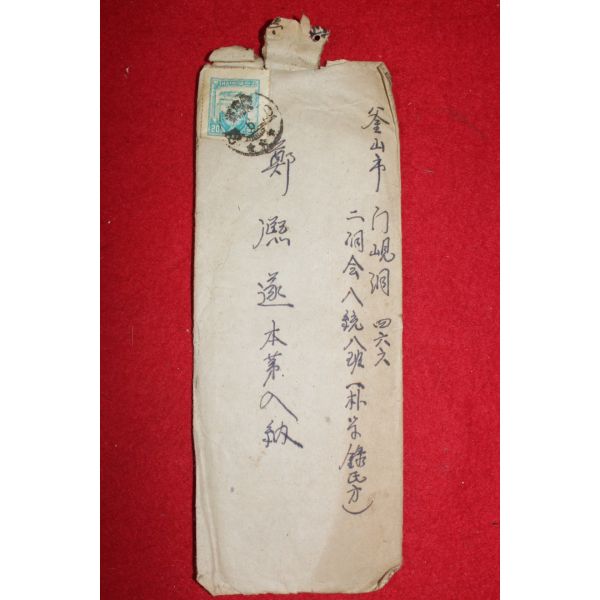 釜山市 门峴洞 四六六
二洞会 八統八班 (朴学錄氏方)
鄭 遂本第入納
20